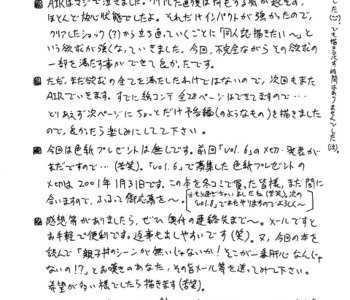 AIRはマジで泣きました。クリアした直後は何をする気が起きず、
ほとんど放心状態でしたよ。それだけインパクトが強かったので、
クリアしたショック(?)から立ち直っていくごとに「同人誌描きたい〜」と
いう欲求が強くなっていきました。今回、不完全ながらその欲求の
一部を満たす事ができて良かったです。
ただ、まだ欲求の全てを満たしたわけではないので、次回もまた
AIRでいきます。すでに絵コンテ全28ページはできてますので…
とりあえず次ページにちょっとだけ予告編(のようなもの)を描きました
ので、良かったら楽しみにしてて下さい。
今回は色紙プレゼントは無しです。前回「vol.6」の〆切・発表が
まだですので…(苦笑)。「vol.6」で募集した色紙プレゼントの
〆切は2001年1月31日です。この本を今ここで買った皆様、まだ間に
合いますので、ふるって御応募を〜。
「vol.8」でまたやりますのでよろしく〜
感想等がありましたら、ぜひ奥付の連絡先まで〜。メールですと
お手軽で便利です。返事もしやすいです(笑)。又、今回の本を
読んで「親子丼のシーンが無いじゃないか!そこが一番肝心なんじゃ
ないの!?」とお嘆きのあなた、その旨メール等を送ってみて下さい。
希望が多い様でしたら描きます(苦笑)。